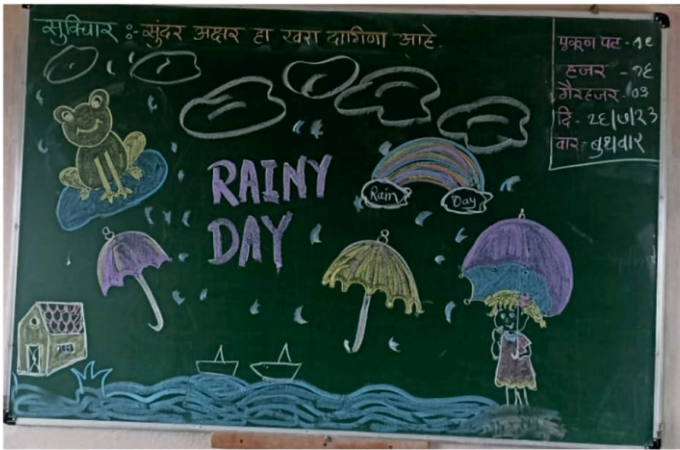 सुविचार :- सुंदर अक्षर हा खरा दागिना आहे.
एकूण पट - १९
हजर - १६
गैरहजर - ०३
दि - २६/७/२३
वार - बुधवार
RAINY
DAY
Rain
Day